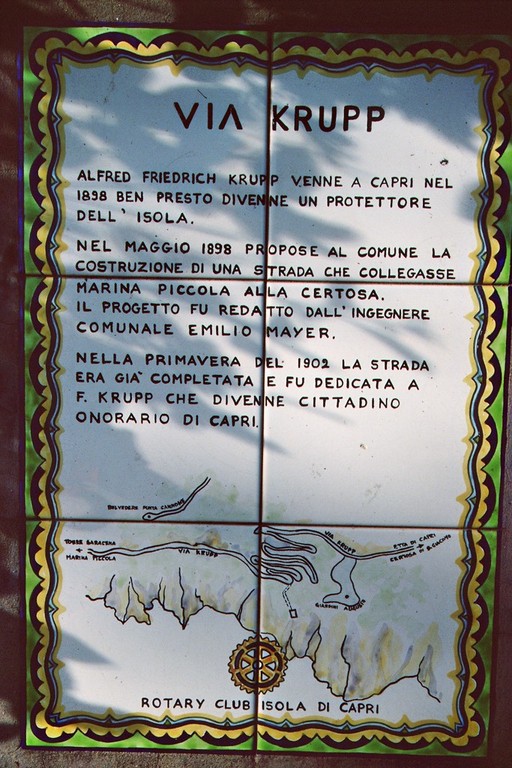 VIA KRUPP
ALFRED FRIEDRICH KRUPP VENNE A CAPRI NEL
1898 BEN PRESTO DIVENNE UN PROTETTORE
DELL' ISOLA.
NEL MAGGIO 1898 PROPOSE AL COMUNE LA
COSTRUZIONE DI UNA STRADA CHE COLLEGASSE
MARINA PICCOLA ALLA CERTOSA.
IL PROGETTO FU REDATTO DALL'INGEGNERE
COMUNALE EMILIO MAYER.
NELLA PRIMAVERA DEL 1902 LA STRADA
ERA GIA' COMPLETATA E FU DEDICATA A
F. KRUPP CHE DIVENNE CITTADINO
ONORARIO DI CAPRI.
BELVEDERE PUNTA CANNONE
TORRE SARACENA
MARINA PICCOLA
VIA KRUPP
VIA KRUPP
CITTA DI CAPRI
CERTOSA DI S. GIACOMO
GIARDINI AUGUSTO
ROTARY CLUB ISOLA DI CAPRI